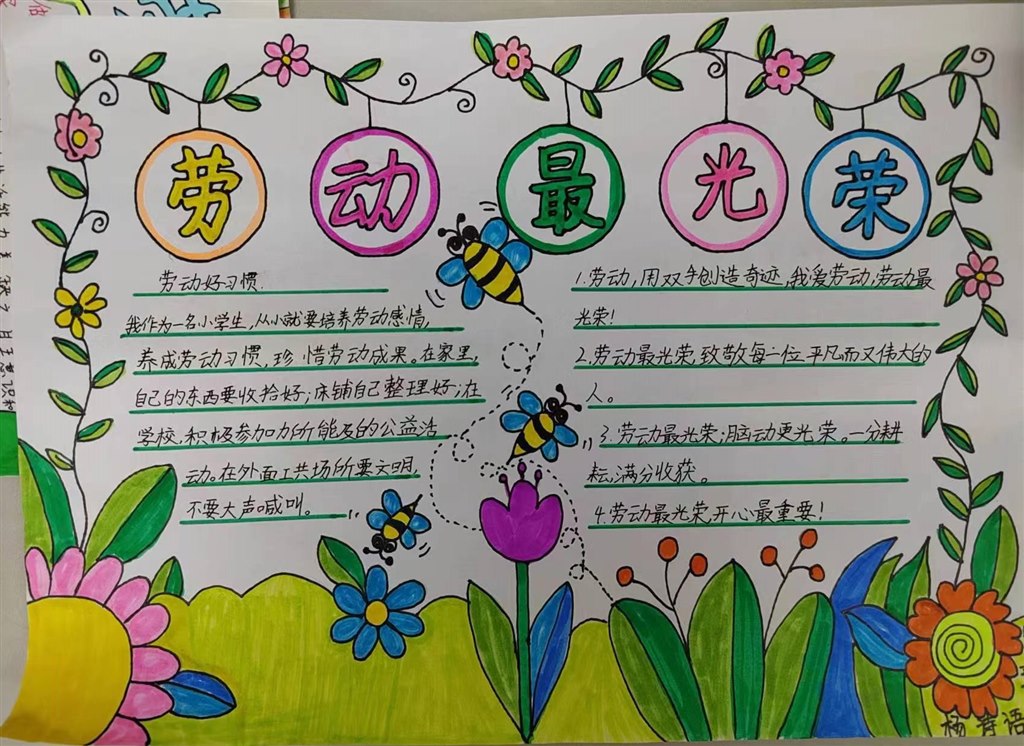 劳动最光荣
劳动好习惯.
我作为一名小学生,从小就要培养劳动感情,
养成劳动习惯,珍惜劳动成果。在家里,
自己的东西要收拾好;床铺自己整理好;在
学校,积极参加力所能及的公益活
动。在外面工共场所要文明,
不要大声喊叫。
1.劳动,用双手创造奇迹,我爱劳动,劳动最
光荣!
2.劳动最光荣,致敬每一位平凡而又伟大的
人。
3.劳动最光荣;脑动更光荣。一分耕
耘,满分收获。
4.劳动最光荣,开心最重要!